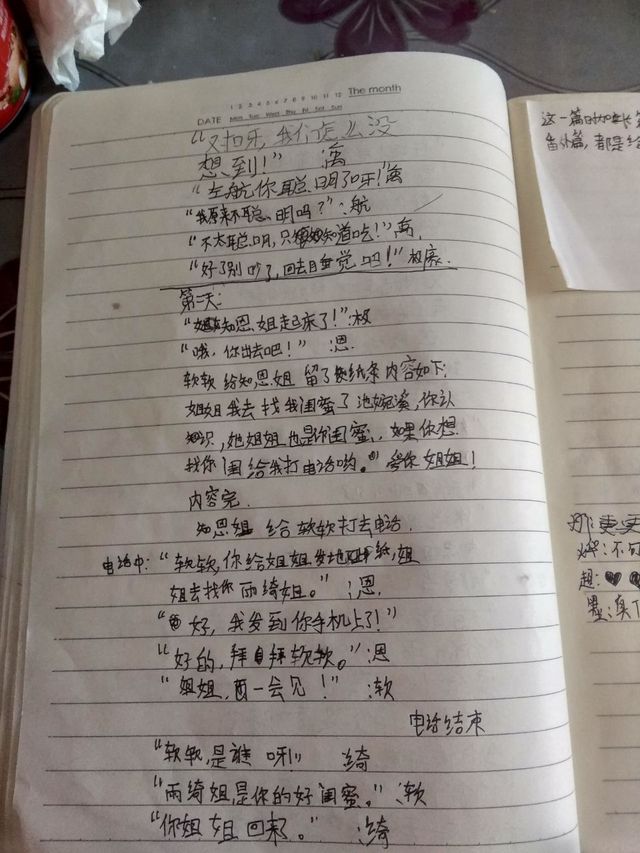 1 2 3 4 5 6 7 8 9 10 11 12 The month
DATE Mon Tue Wed Thu Fri Sat Sun
"对呀,我们怎么没
想到!" 离
"左航你聪明了呀!"离
"我原来不聪明吗?":航
"不太聪明,只知道吃!"离
"好了别吵了,回去睡觉吧!"极
第二天:
"知恩姐起来了!":极
"哦,你出去吧!" :恩
软软给知恩姐留了纸条内容如下:
姐姐我去找我闺蜜了池婉溪,你认
知识,她姐姐也是你闺蜜,如果你想
找你闺给我打电话哟。爱你姐姐!
内容完
知恩姐给软软打去电话
电话中:"软软,你给姐姐发地址,姐
姐去找你雨绮姐。" :恩
"好,我发到你手机上了!"
"好的,拜拜软软。":恩
"姐姐,一会见!" :软
电话结束
"软软,是谁呀!" 绮
"雨绮姐是你的好闺蜜。" :软
"你姐姐回来。" :绮
这一篇
番外篇,都是给
那:要
不可
超:♥♥
墨: